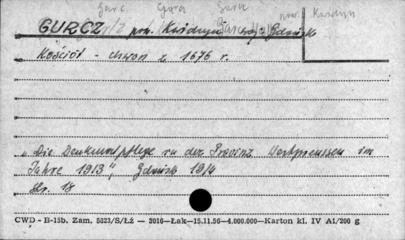 Garc Gora Garn pow. Kwidzyn
GURCZ pow. Kwidzyn woj. Gdańsk
Kościół - chwon z 1676 r.
"Die Denkmalpflege in der Provinz Westpreussen im
Jahre 1913", Gdańsk 1914
Str. 18
CWD - B-15b. Zam. 5823/S/Łź — 3016—Łak—15.11.56—4.000.000—Karton kl. IV A1/200 g